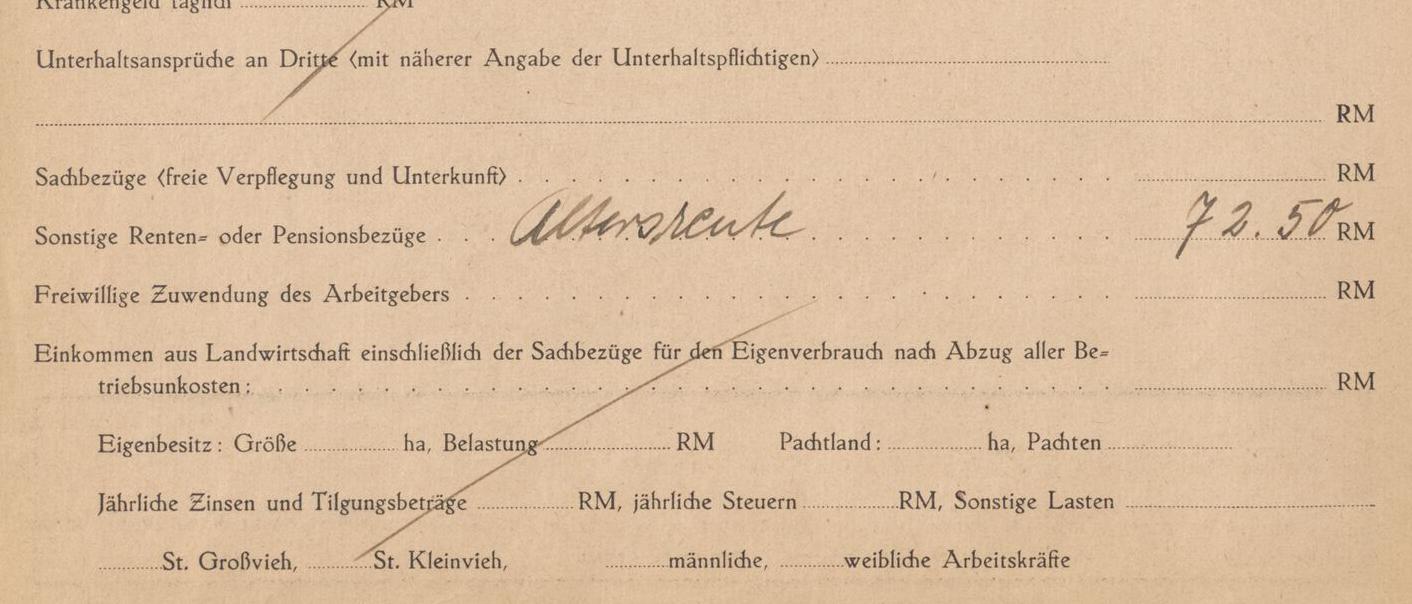 Krankengeld täglich .................... RM
Unterhaltsansprüche an Dritte (mit näherer Angabe der Unterhaltspflichtigen) ....................
.................... RM
Sachbezüge (freie Verpflegung und Unterkunft) . . . . . . . . . . .................... RM
Sonstige Renten= oder Pensionsbezüge . . . Altersrente . . . . . . 72.50 RM
Freiwillige Zuwendung des Arbeitgebers . . . . . . . . . . .................... RM
Einkommen aus Landwirtschaft einschließlich der Sachbezüge für den Eigenverbrauch nach Abzug aller Be=
triebsunkosten: . . . . . . . . . . .................... RM
Eigenbesitz: Größe ............ ha, Belastung ............ RM Pachtland: ............ ha, Pachten ............
Jährliche Zinsen und Tilgungsbeträge ............ RM, jährliche Steuern ............ RM, Sonstige Lasten ....................
............ St. Großvieh, ............ St. Kleinvieh, ............ männliche, ............ weibliche Arbeitskräfte